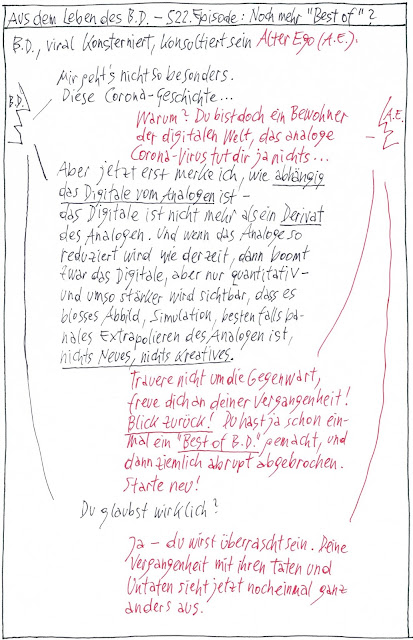 Aus dem Leben des B.D. – 522. Episode: Noch mehr "Best of"?
B.D., viral konsterniert, konsultiert sein Alter Ego (A.E.).
Mir geht's nicht so besonders.
Diese Corona-Geschichte...
B.D.
A.E.
Warum? Du bist doch ein Bewohner
der digitalen Welt, das analoge
Corona-Virus tut dir ja nichts...
Aber jetzt erst merke ich, wie abhängig
das Digitale vom Analogen ist –
das Digitale ist nicht mehr als ein Derivat
des Analogen. Und wenn das Analoge so
reduziert wird wie derzeit, dann boomt
zwar das Digitale, aber nur quantitativ –
und umso stärker wird sichtbar, dass es
blosses Abbild, Simulation, bestenfalls ba-
nales Extrapolieren des Analogen ist,
nichts Neues, nichts Kreatives.
Trauere nicht um die Gegenwart,
freue dich an deiner Vergangenheit!
Blick zurück! Du hast ja schon ein-
mal ein "Best of B.D." gemacht, und
dann ziemlich abrupt abgebrochen.
Starte neu!
Du glaubst wirklich?
Ja – du wirst überrascht sein. Deine
Vergangenheit mit ihren Taten und
Untaten sieht jetzt noch einmal ganz
anders aus.